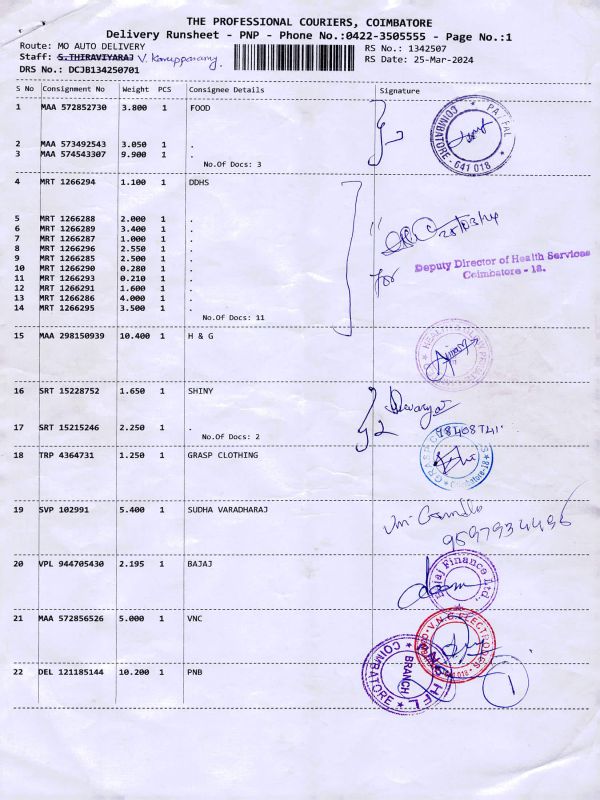 THE PROFESSIONAL COURIERS, COIMBATORE
Delivery Runsheet - PNP - Phone No.:0422-3505555 - Page No.:1
Route: MO AUTO DELIVERY
RS No.: 1342507
Staff: S.THIRAVIYARAJ V. Karuppasamy
RS Date: 25-Mar-2024
DRS No.: DCJB134250701
S No Consignment No Weight PCS Consignee Details Signature
1 MAA 572852730 3.800 1 FOOD
2 MAA 573492543 3.050 1 .
3 MAA 574543307 9.900 1 .
No.Of Docs: 3
COIMBATORE - 641 018
4 MRT 1266294 1.100 1 DDHS
5 MRT 1266288 2.000 1 .
6 MRT 1266289 3.400 1 .
7 MRT 1266287 1.000 1 .
8 MRT 1266296 2.550 1 .
9 MRT 1266285 2.500 1 .
10 MRT 1266290 0.280 1 .
11 MRT 1266293 0.210 1 .
12 MRT 1266291 1.600 1 .
13 MRT 1266286 4.000 1 .
14 MRT 1266295 3.500 1 .
No.Of Docs: 11
11
25/03/24
for
Deputy Director of Health Services
Coimbatore - 18.
15 MAA 298150939 10.400 1 H & G
16 SRT 15228752 1.650 1 SHINY
17 SRT 15215246 2.250 1 .
No.Of Docs: 2
2
18 TRP 4364731 1.250 1 GRASP CLOTHING
19 SVP 102991 5.400 1 SUDHA VARADHARAJ
9597934496
20 VPL 944705430 2.195 1 BAJAJ
Bajaj Finance Ltd.,
21 MAA 572856526 5.000 1 VNC
22 DEL 121185144 10.200 1 PNB
COIMBATORE
BRANCH
1